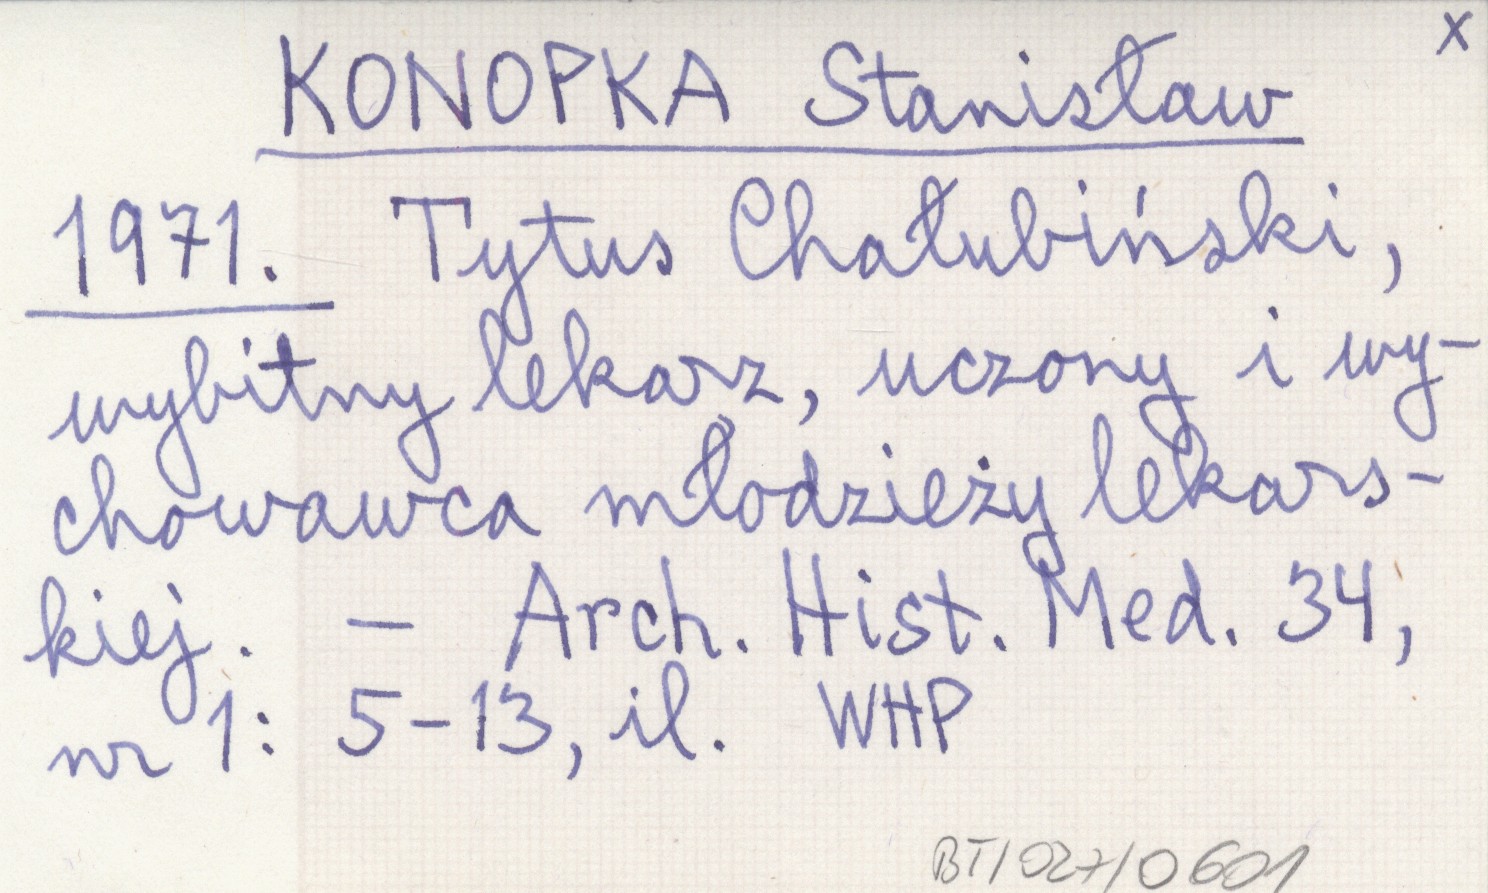 x
KONOPKA Stanisław
1971. Tytus Chałubiński,
wybitny lekarz, uczony i wy-
chowawca młodzieży lekars-
kiej. – Arch. Hist. Med. 34,
nr 1: 5-13, il. WHP
BT/027/0601